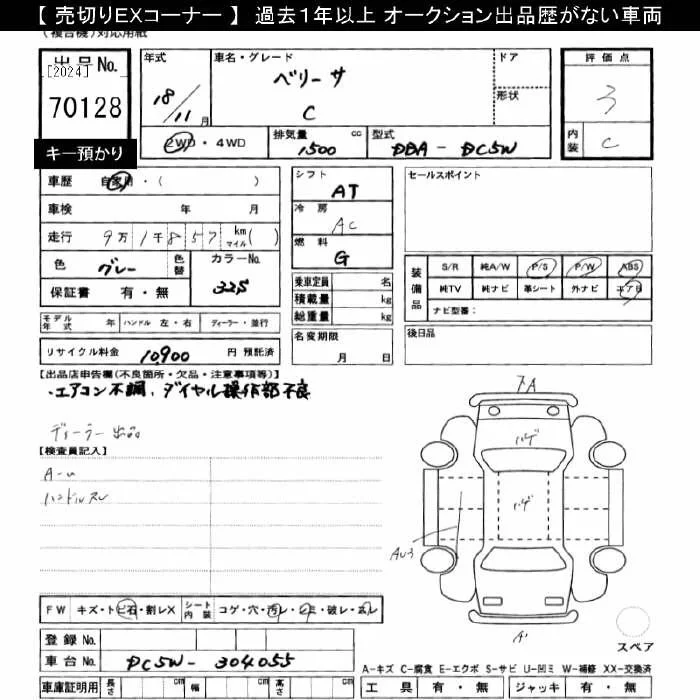 【 売切りEXコーナー 】 過去1年以上 オークション出品歴がない車両
(複合機)対応用紙
出品No.
[2024]
70128
キー預かり
年式
18/11月
車名・グレード
ベリーサ
C
ドア
形状
評価点
3
内装
C
2WD・4WD
排気量
1500 cc
型式
DBA - DC5W
車歴 自家用・( )
車検 年 月
走行 9万1千857 kmマイル( )
色 グレー
色替
カラーNo.
325
保証書 有・無
シフト
AT
冷房
AC
燃料
G
乗車定員 名
積載量 kg
総重量 kg
セールスポイント
装備品
S/R 純A/W P/S P/W ABS
純TV 純ナビ 革シート 外ナビ エアB
ナビ型番:
モデル年式 年 ハンドル 左・右 ディーラー・並行
リサイクル料金 10,900 円 預託済
名変期限
月 日
後日品
【出品店申告欄(不良箇所・欠品・注意事項等)】
・エアコン不調、ダイヤル操作部不良
ディーラー出品
【検査員記入】
A-u
ハンドルスレ
7A
ハゲ
ハゲ
AU3
A'
スペア
FW キズ・トビ石・割レX
シート内装 コゲ・穴・汚レ・シミ・破レ・スレ
登録No.
車台No. DC5W-304055
車庫証明用 長さ cm 幅 cm 高さ cm
A-キズ C-腐食 E-エクボ S-サビ U-凹ミ W-補修 XX-交換済
工具 有・無 ジャッキ 有・無